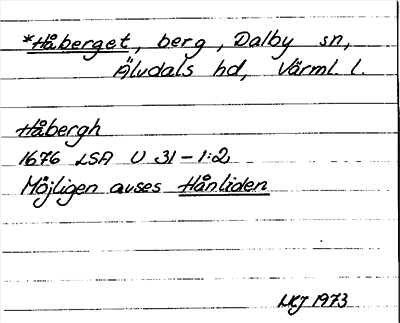 *Håberget, berg, Dalby sn,
Älvdals hd, Värml. l.
Håbergh
1676 LSA U 31-1:2
Möjligen avses Hånliden
1973